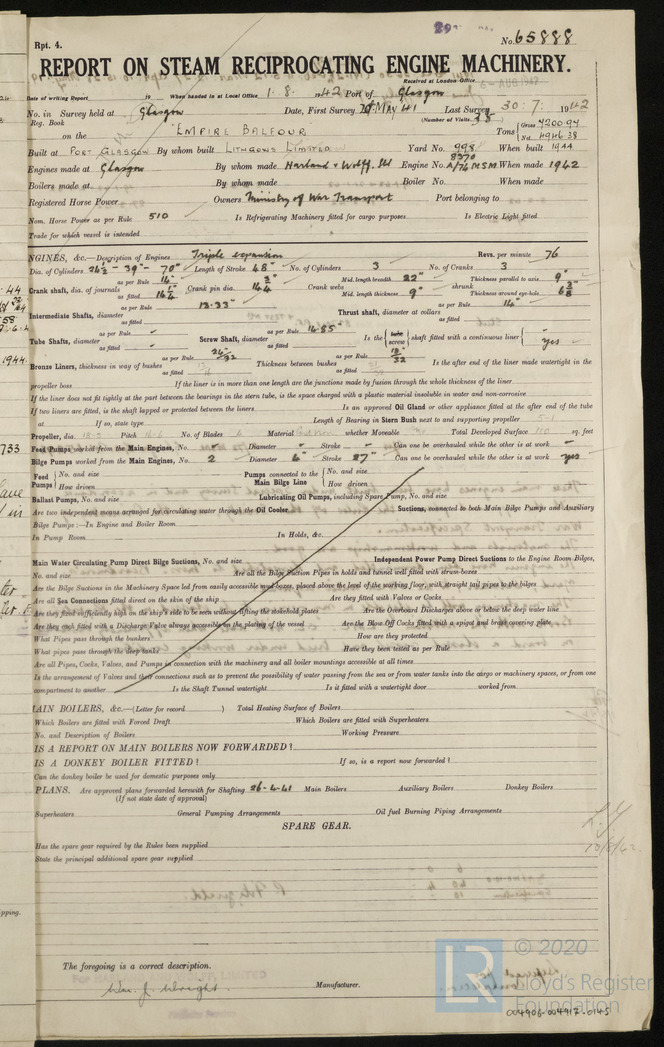 Rpt. 4.
No. 65888
REPORT ON STEAM RECIPROCATING ENGINE MACHINERY.
Received at London Office 6 - AUG 1942
Date of writing Report 19 When handed in at Local Office 1. 8. 1942 Port of Glasgow
No. in Reg. Book Survey held at Glasgow Date, First Survey MAY 41 Last Survey 30: 7: 1942
(Number of Visits 38)
on the "EMPIRE BALFOUR" Tons Gross 7200.94 Net 4946.38
Built at PORT GLASGOW By whom built LITHGOWS LIMITED Yard No. 998 When built 1944
Engines made at Glasgow By whom made Harland & Wolff Ltd Engine No. 8370 A/74 M.S.M. When made 1942
Boilers made at By whom made Boiler No. When made
Registered Horse Power Owners Ministry of War Transport Port belonging to
Nom. Horse Power as per Rule 510 Is Refrigerating Machinery fitted for cargo purposes Is Electric Light fitted
Trade for which vessel is intended
NGINES, &c.—Description of Engines Triple expansion Revs. per minute 76
Dia. of Cylinders 24½"- 39"- 70" Length of Stroke 48" No. of Cylinders 3 No. of Cranks 3
Crank shaft, dia. of journals as per Rule as fitted 14¼" Crank pin dia. 14¼" Crank webs Mid. length breadth 22" Mid. length thickness 9" shrunk Thickness parallel to axis 9" Thickness around eye-hole 6⅝"
Intermediate Shafts, diameter as per Rule 13.33" as fitted Thrust shaft, diameter at collars as per Rule 14" as fitted
Tube Shafts, diameter as per Rule - as fitted - Screw Shaft, diameter as per Rule 14.85" as fitted Is the tube screw shaft fitted with a continuous liner yes
Bronze Liners, thickness in way of bushes as per Rule 24/32 as fitted Thickness between bushes as per Rule 18/32 as fitted Is the after end of the liner made watertight in the
propeller boss If the liner is in more than one length are the junctions made by fusion through the whole thickness of the liner
If the liner does not fit tightly at the part between the bearings in the stern tube, is the space charged with a plastic material insoluble in water and non-corrosive
If two liners are fitted, is the shaft lapped or protected between the liners Is an approved Oil Gland or other appliance fitted at the after end of the tube
at If so, state type Length of Bearing in Stern Bush next to and supporting propeller
Propeller, dia. Pitch No. of Blades Material whether Moveable Total Developed Surface sq. feet
Feed Pumps worked from the Main Engines, No. - Diameter - Stroke - Can one be overhauled while the other is at work -
Bilge Pumps worked from the Main Engines, No. 2 Diameter 6" Stroke 27" Can one be overhauled while the other is at work yes
Feed Pumps No. and size How driven Pumps connected to the Main Bilge Line No. and size How driven
Ballast Pumps, No. and size Lubricating Oil Pumps, including Spare Pump, No. and size
Are two independent means arranged for circulating water through the Oil Cooler Suctions, connected to both Main Bilge Pumps and Auxiliary
Bilge Pumps :—In Engine and Boiler Room
In Pump Room In Holds, &c.
Main Water Circulating Pump Direct Bilge Suctions, No. and size Independent Power Pump Direct Suctions to the Engine Room Bilges,
No. and size Are all the Bilge Suction Pipes in holds and tunnel well fitted with strum-boxes
Are the Bilge Suctions in the Machinery Space led from easily accessible mud boxes, placed above the level of the working floor, with straight tail pipes to the bilges
Are all Sea Connections fitted direct on the skin of the ship Are they fitted with Valves or Cocks
Are they fixed sufficiently high on the ship's side to be seen without lifting the stokehold plates Are the Overboard Discharges above or below the deep water line
Are they each fitted with a Discharge Valve always accessible on the plating of the vessel Are the Blow Off Cocks fitted with a spigot and brass covering plate
What Pipes pass through the bunkers How are they protected
What pipes pass through the deep tanks Have they been tested as per Rule
Are all Pipes, Cocks, Valves, and Pumps in connection with the machinery and all boiler mountings accessible at all times
Is the arrangement of Valves and their connections such as to prevent the possibility of water passing from the sea or from water tanks into the cargo or machinery spaces, or from one
compartment to another Is the Shaft Tunnel watertight Is it fitted with a watertight door worked from
IAIN BOILERS, &c.—(Letter for record ) Total Heating Surface of Boilers
Which Boilers are fitted with Forced Draft Which Boilers are fitted with Superheaters
No. and Description of Boilers Working Pressure
IS A REPORT ON MAIN BOILERS NOW FORWARDED?
IS A DONKEY BOILER FITTED? If so, is a report now forwarded?
Can the donkey boiler be used for domestic purposes only
PLANS. Are approved plans forwarded herewith for Shafting 26-4-41 Main Boilers Auxiliary Boilers Donkey Boilers
(If not state date of approval)
Superheaters General Pumping Arrangements Oil fuel Burning Piping Arrangements
SPARE GEAR.
Has the spare gear required by the Rules been supplied
State the principal additional spare gear supplied
The foregoing is a correct description.
Wm. J. Wright. Manufacturer.
© 2020
LR Lloyd's Register
Foundation
004906-004917-0145